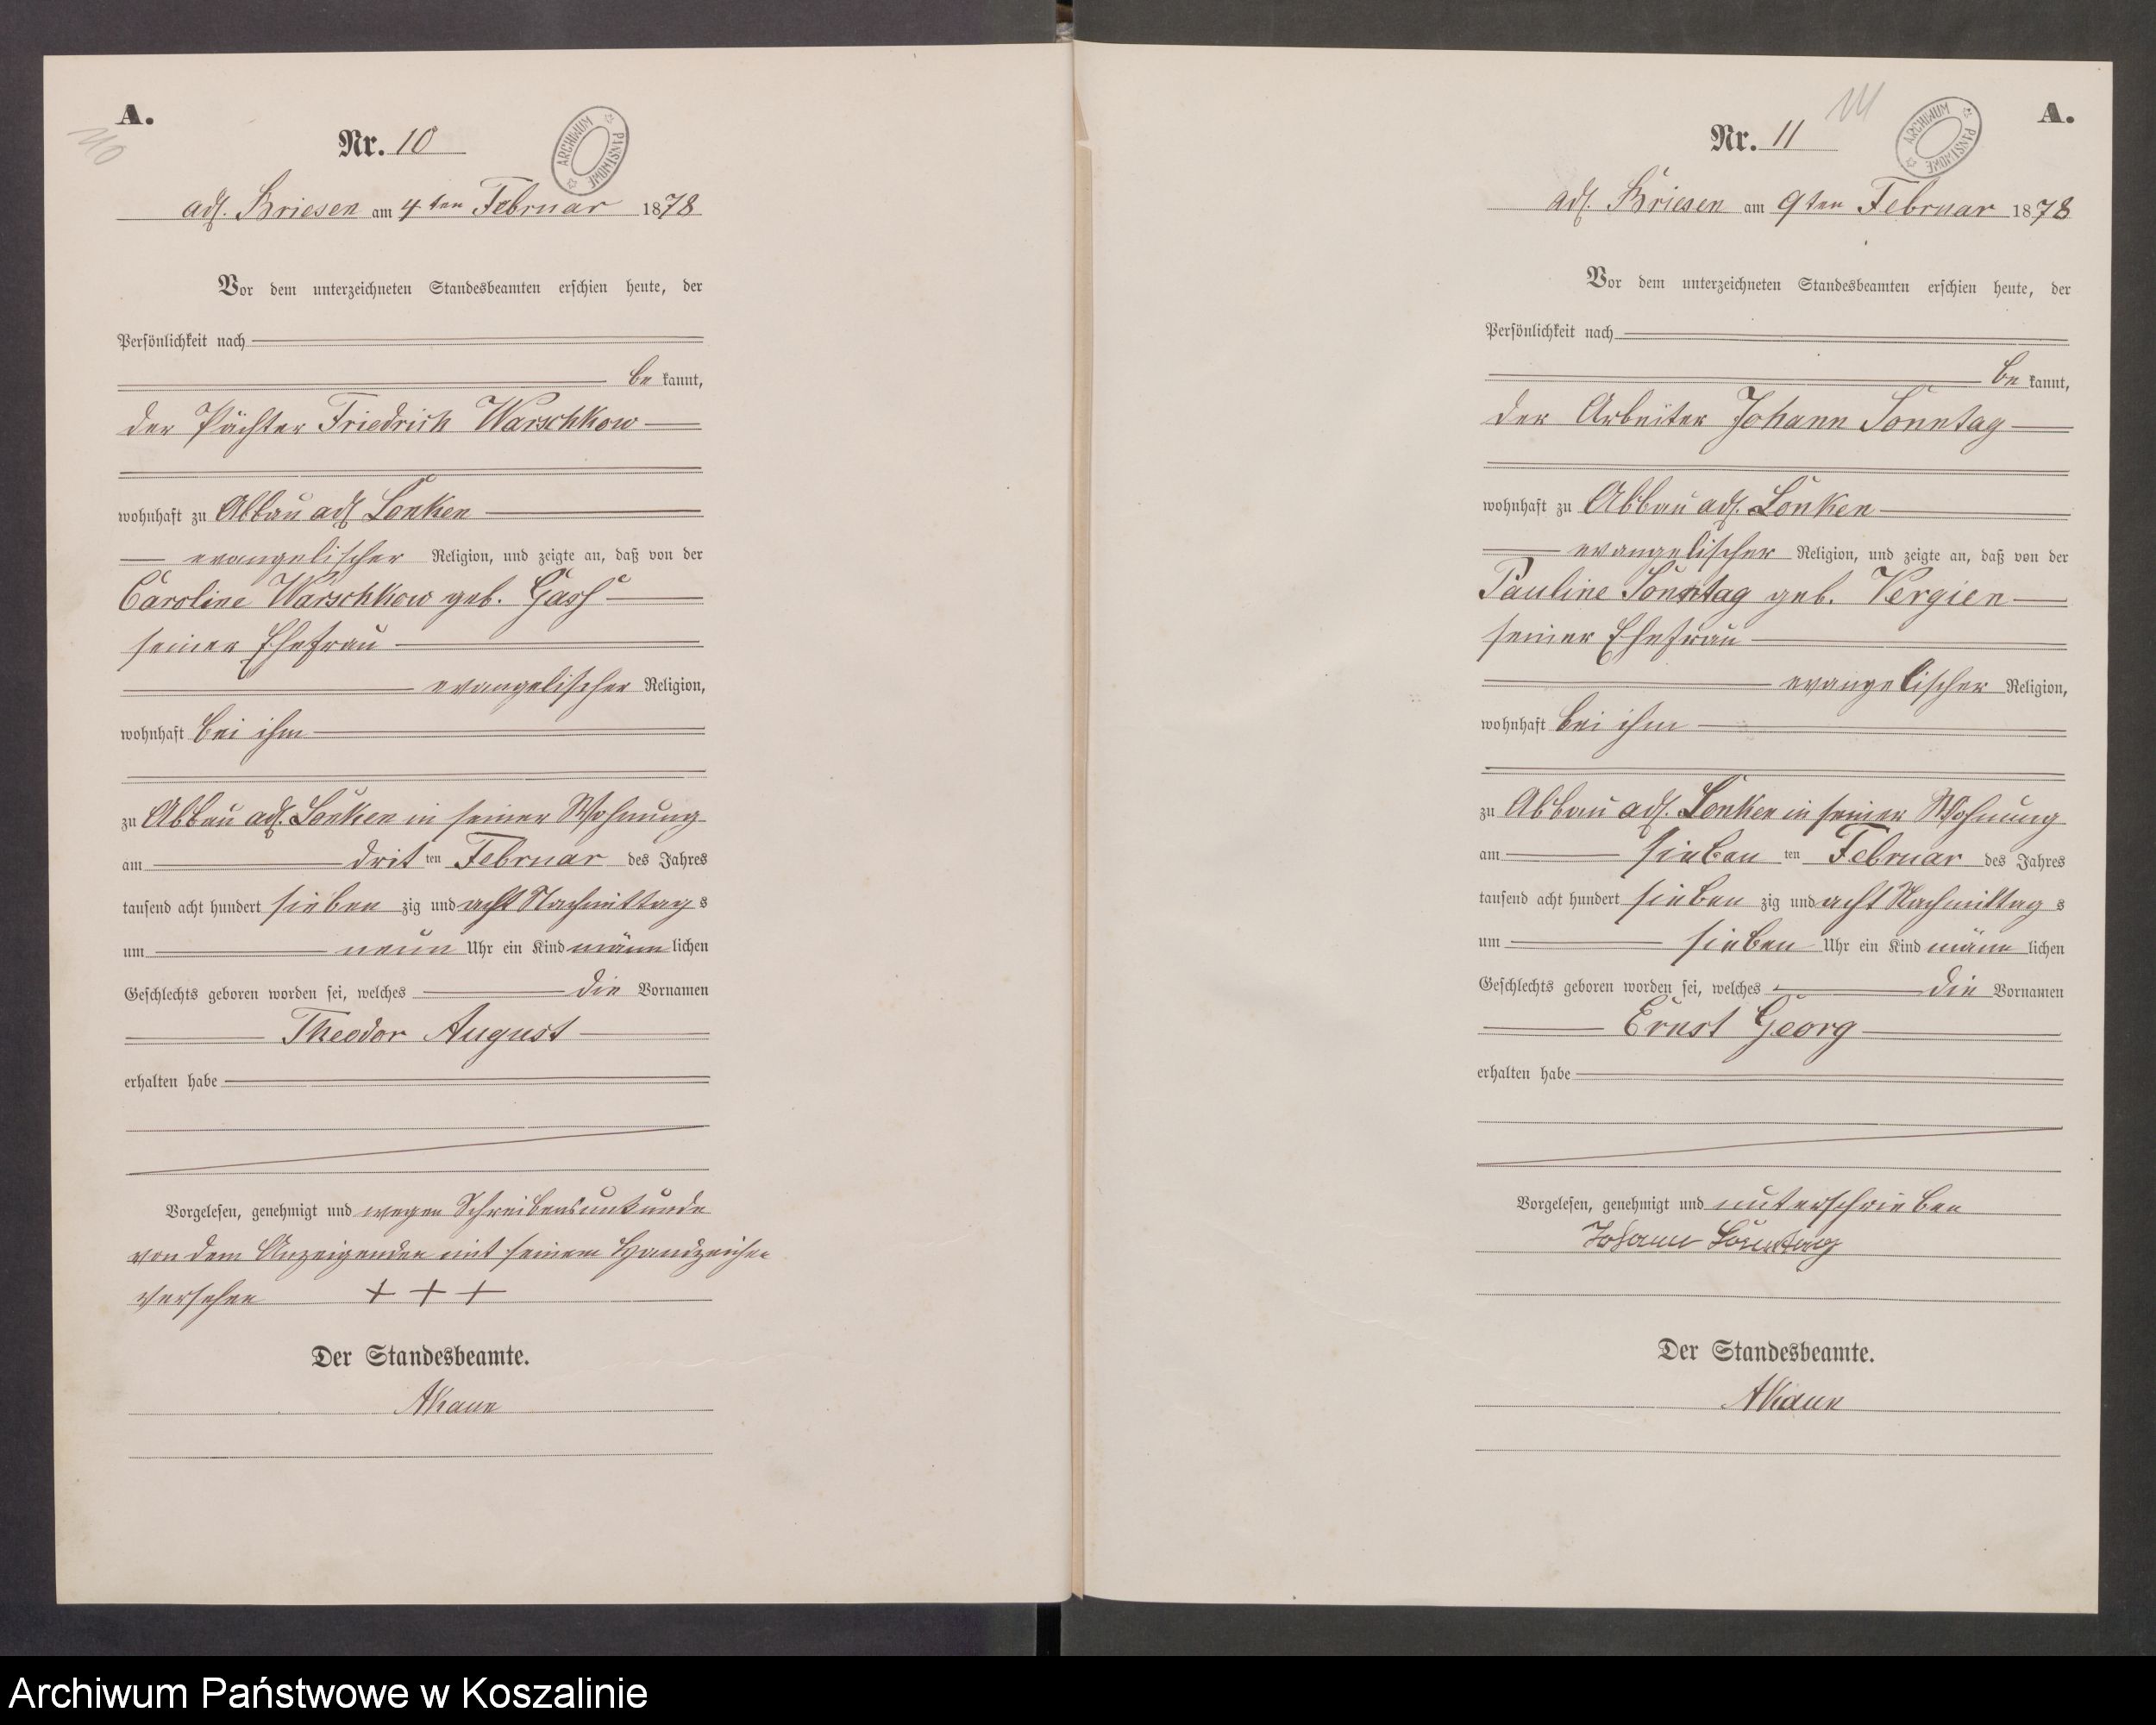 A.
Nr. 10
ARCHIWUM PAŃSTWOWE
adl. Briesen am 4ten Februar 1878
Vor dem unterzeichneten Standesbeamten erschien heute, der
Persönlichkeit nach
be kannt,
der Pächter Friedrich Warschkow
wohnhaft zu Abbau adl. Lonken
evangelischer Religion, und zeigte an, daß von der
Caroline Warschkow geb. Gass
seiner Ehefrau
evangelischer Religion,
wohnhaft bei ihm
zu Abbau adl. Lonken in seiner Wohnung
am drit ten Februar des Jahres
tausend acht hundert sieben zig und acht Nachmittag s
um neun Uhr ein Kind männ lichen
Geschlechts geboren worden sei, welches die Vornamen
Theodor August
erhalten habe
Vorgelesen, genehmigt und wegen Schreibensunkunde
von dem Anzeigenden mit seinem Handzeichen
versehen + + +
Der Standesbeamte.
A.
Nr. 11
ARCHIWUM PAŃSTWOWE
adl. Briesen am 9ten Februar 1878
Vor dem unterzeichneten Standesbeamten erschien heute, der
Persönlichkeit nach
be kannt,
der Arbeiter Johann Sonntag
wohnhaft zu Abbau adl. Lonken
evangelischer Religion, und zeigte an, daß von der
Pauline Sonntag geb. Vergien
seiner Ehefrau
evangelischer Religion,
wohnhaft bei ihm
zu Abbau adl. Lonken in seiner Wohnung
am sieben ten Februar des Jahres
tausend acht hundert sieben zig und acht Nachmittag s
um sieben Uhr ein Kind männ lichen
Geschlechts geboren worden sei, welches die Vornamen
Ernst Georg
erhalten habe
Vorgelesen, genehmigt und unterschrieben
Johann Sonntag
Der Standesbeamte.
Archiwum Państwowe w Koszalinie